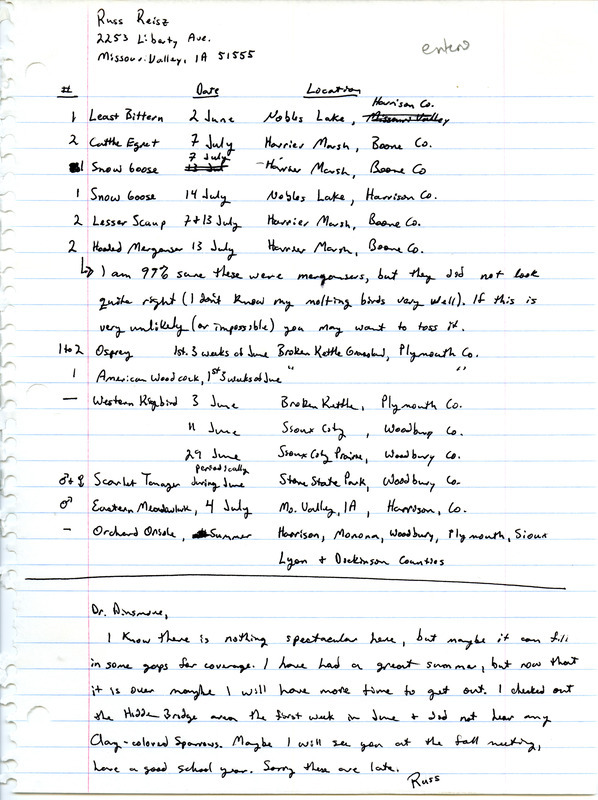 Russ Reisz
2253 Liberty Ave.
Missouri Valley, IA 51555
enter
# Date Location
1 Least Bittern 2 June Nobles Lake, Missouri Valley Harrison Co.
2 Cattle Egret 7 July Harrier Marsh, Boone Co.
1 Snow Goose 7 July Harrier Marsh, Boone Co
1 Snow Goose 14 July Nobles Lake, Harrison Co.
2 Lesser Scaup 7+13 July Harrier Marsh, Boone Co.
2 Hooded Merganser 13 July Harrier Marsh, Boone Co.
↳ I am 97% sure these were mergansers, but they did not look
quite right (I don't know my molting birds very well). If this is
very unlikely (or impossible) you may want to toss it.
1 to 2 Osprey 1st. 3 weeks of June Broken Kettle Grassland, Plymouth Co.
1 American Woodcock, 1st 3 weeks of June " "
— Western Kingbird 3 June Broken Kettle, Plymouth Co.
11 June Sioux City, Woodbury Co.
29 June Sioux City Prairie, Woodbury Co.
♂+♀ Scarlet Tanager periodically during June Stone State Park, Woodbury Co.
♂ Eastern Meadowlark, 4 July Mo. Valley, IA, Harrison, Co.
- Orchard Oriole, Summer Harrison, Monona, Woodbury, Plymouth, Sioux
Lyon + Dickinson Counties
Dr. Dinsmore,
I know there is nothing spectacular here, but maybe it can fill
in some gaps for coverage. I have had a great summer, but now that
it is over maybe I will have more time to get out. I checked out
the Hidden Bridge area the first week in June + did not hear any
Clay-colored Sparrows. Maybe I will see you at the fall meeting,
have a good school year. Sorry these are late.
Russ